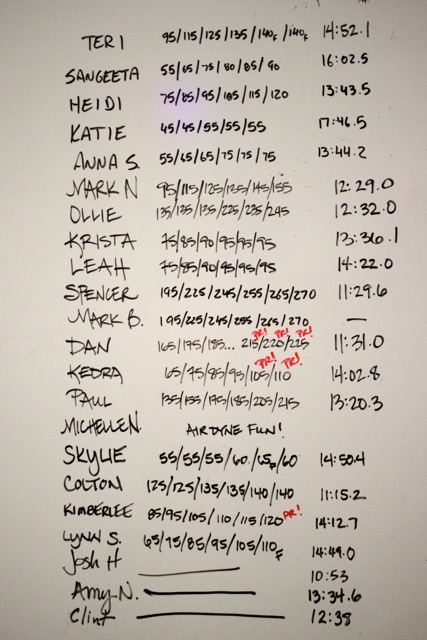 TERI 95/115/125/135/140F/140F 14:52.1
SANGEETA 55/65/75/80/85/90 16:02.5
HEIDI 75/85/95/105/115/120 13:43.5
KATIE 45/45/55/55/55 17:46.5
ANNA S. 55/65/65/75/75/75 13:44.2
MARK N 95/115/125/135/145/155 12:29.0
OLLIE 135/185/225/235/245 12:32.0
KRISTA 75/85/90/95/95/95 13:36.1
LEAH 75/85/90/95/95/95 14:22.0
SPENCER 195/225/245/255/265/270 11:29.6
MARK B. 195/225/245/255/265/270 —
PR! PR! PR!
DAN 165/175/185... 215/220/225 11:31.0
PR! PR!
KEDRA 65/75/85/95/105/110 14:02.8
PAUL 135/155/175/185/205/215 13:20.3
MICHELLE N. AIRDYNE FUN!
SKYLIE 55/55/55/60/65F/60 14:50.4
COLTON 125/125/135/135/140/140 11:15.2
KIMBERLEE 85/95/105/110/115/120 PR! 14:12.7
LYNN S. 65/75/85/95/105/110F 14:49.0
Josh H 10:53
Amy N. 13:34.6
Clint 12:38